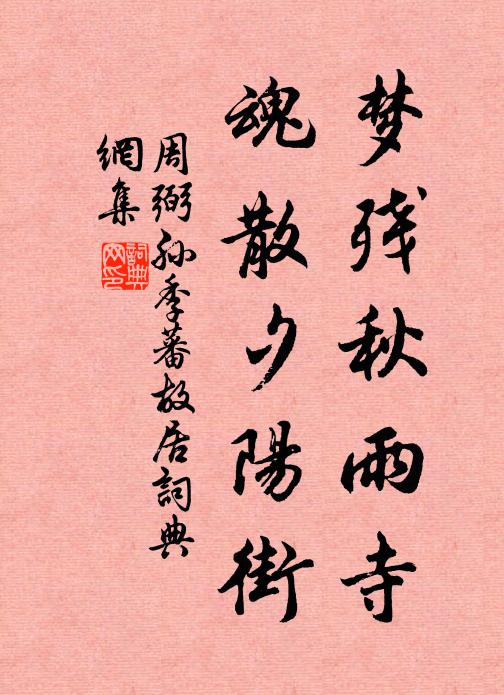 梦残秋雨寺
魂散夕陽街
周弼孙季蕃故居詞典
網集
詞典
网印